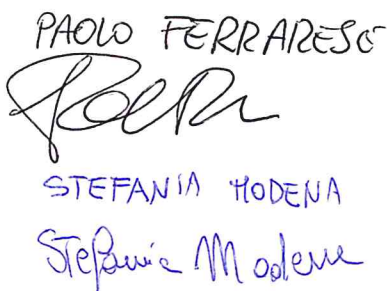 PAOLO FERRARESE
STEFANIA MODENA
Stefania Modena